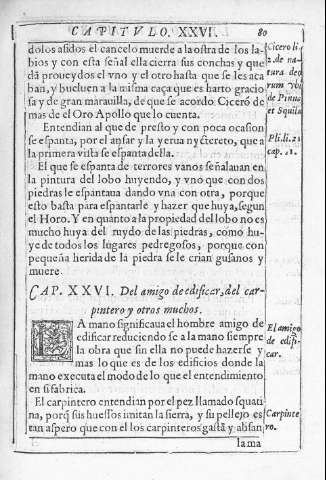 CAPITVLO. XXVI. 80
dolos asidos el cancelo muerde a la ostra de los la-
bios y con esta señal ella cierra sus conchas y que
dã proueydos el vno y el otro hasta que se les aca
ban, y bueluen a la misma caça que es harto gracio
sa y de gran marauilla, de que se acordo Ciceró de
mas de el Oro Apollo que lo cuenta.
Entendian al que de presto y con poca ocasion
se espanta, por el ansar y la yerua nyctereto, que a
la primera vista se espanta della.
El que se espanta de terrores vanos señalauan en
la pintura del lobo huyendo, y vno que con dos
piedras le espantaua dando vna con otra, porque
esto basta para espantarle y hazer que huya, segun
el Horo. Y en quanto a la propiedad del lobo no es
mucho huya del ruydo de las piedras, como hu-
ye de todos los lugares pedregosos, porque con
pequeña herida de la piedra se le crian gusanos y
muere.
CAP. XXVI. Del amigo de edificar, del car-
pintero y otros muchos.
LA mano significaua el hombre amigo de
edificar reduciendo se a la mano siempre
la obra que sin ella no puede hazerse y
mas lo que es de los edificios donde la
mano executa el modo de lo que el entendimiento
en si fabrica.
El carpintero entendian por el pez llamado squati
na, porq̃ sus huessos imitan la sierra, y su pellejo es
tan aspero que con el los carpinteros gastã y alisan
la ma
Cicero li.
2. de na-
tura deo
rum vbi
de Pinna
et Squila
Pli. li. 21
cap. 11.
El amigo
de edifi-
car.
Carpinte
ro.